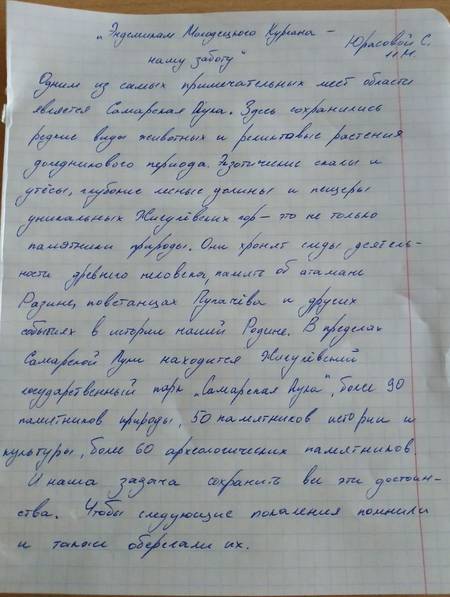 „Эндемикам Молодецкого Кургана –
нашу заботу"
Юрасовой С.
11 М.
Одним из самых примечательных мест области
является Самарская Лука. Здесь сохранились
редкие виды животных и реликтовые растения
доледникового периода. Экзотические скалы и
утёсы, глубокие лесные долины и пещеры
уникальных Жигулёвских гор – это не только
памятники природы. Они хранят следы деятель-
ности древнего человека, память об атамане
Разине, повстанцах Пугачёва и других
событиях в истории нашей Родине. В пределах
Самарской Луки находится Жигулёвский
государственный парк „Самарская Лука", более 90
памятников природы, 50 памятников истории и
культуры, более 60 археологических памятников.
И наша задача сохранить все эти достоин-
ства. Чтобы следующие поколения помнили
и также оберегали их.